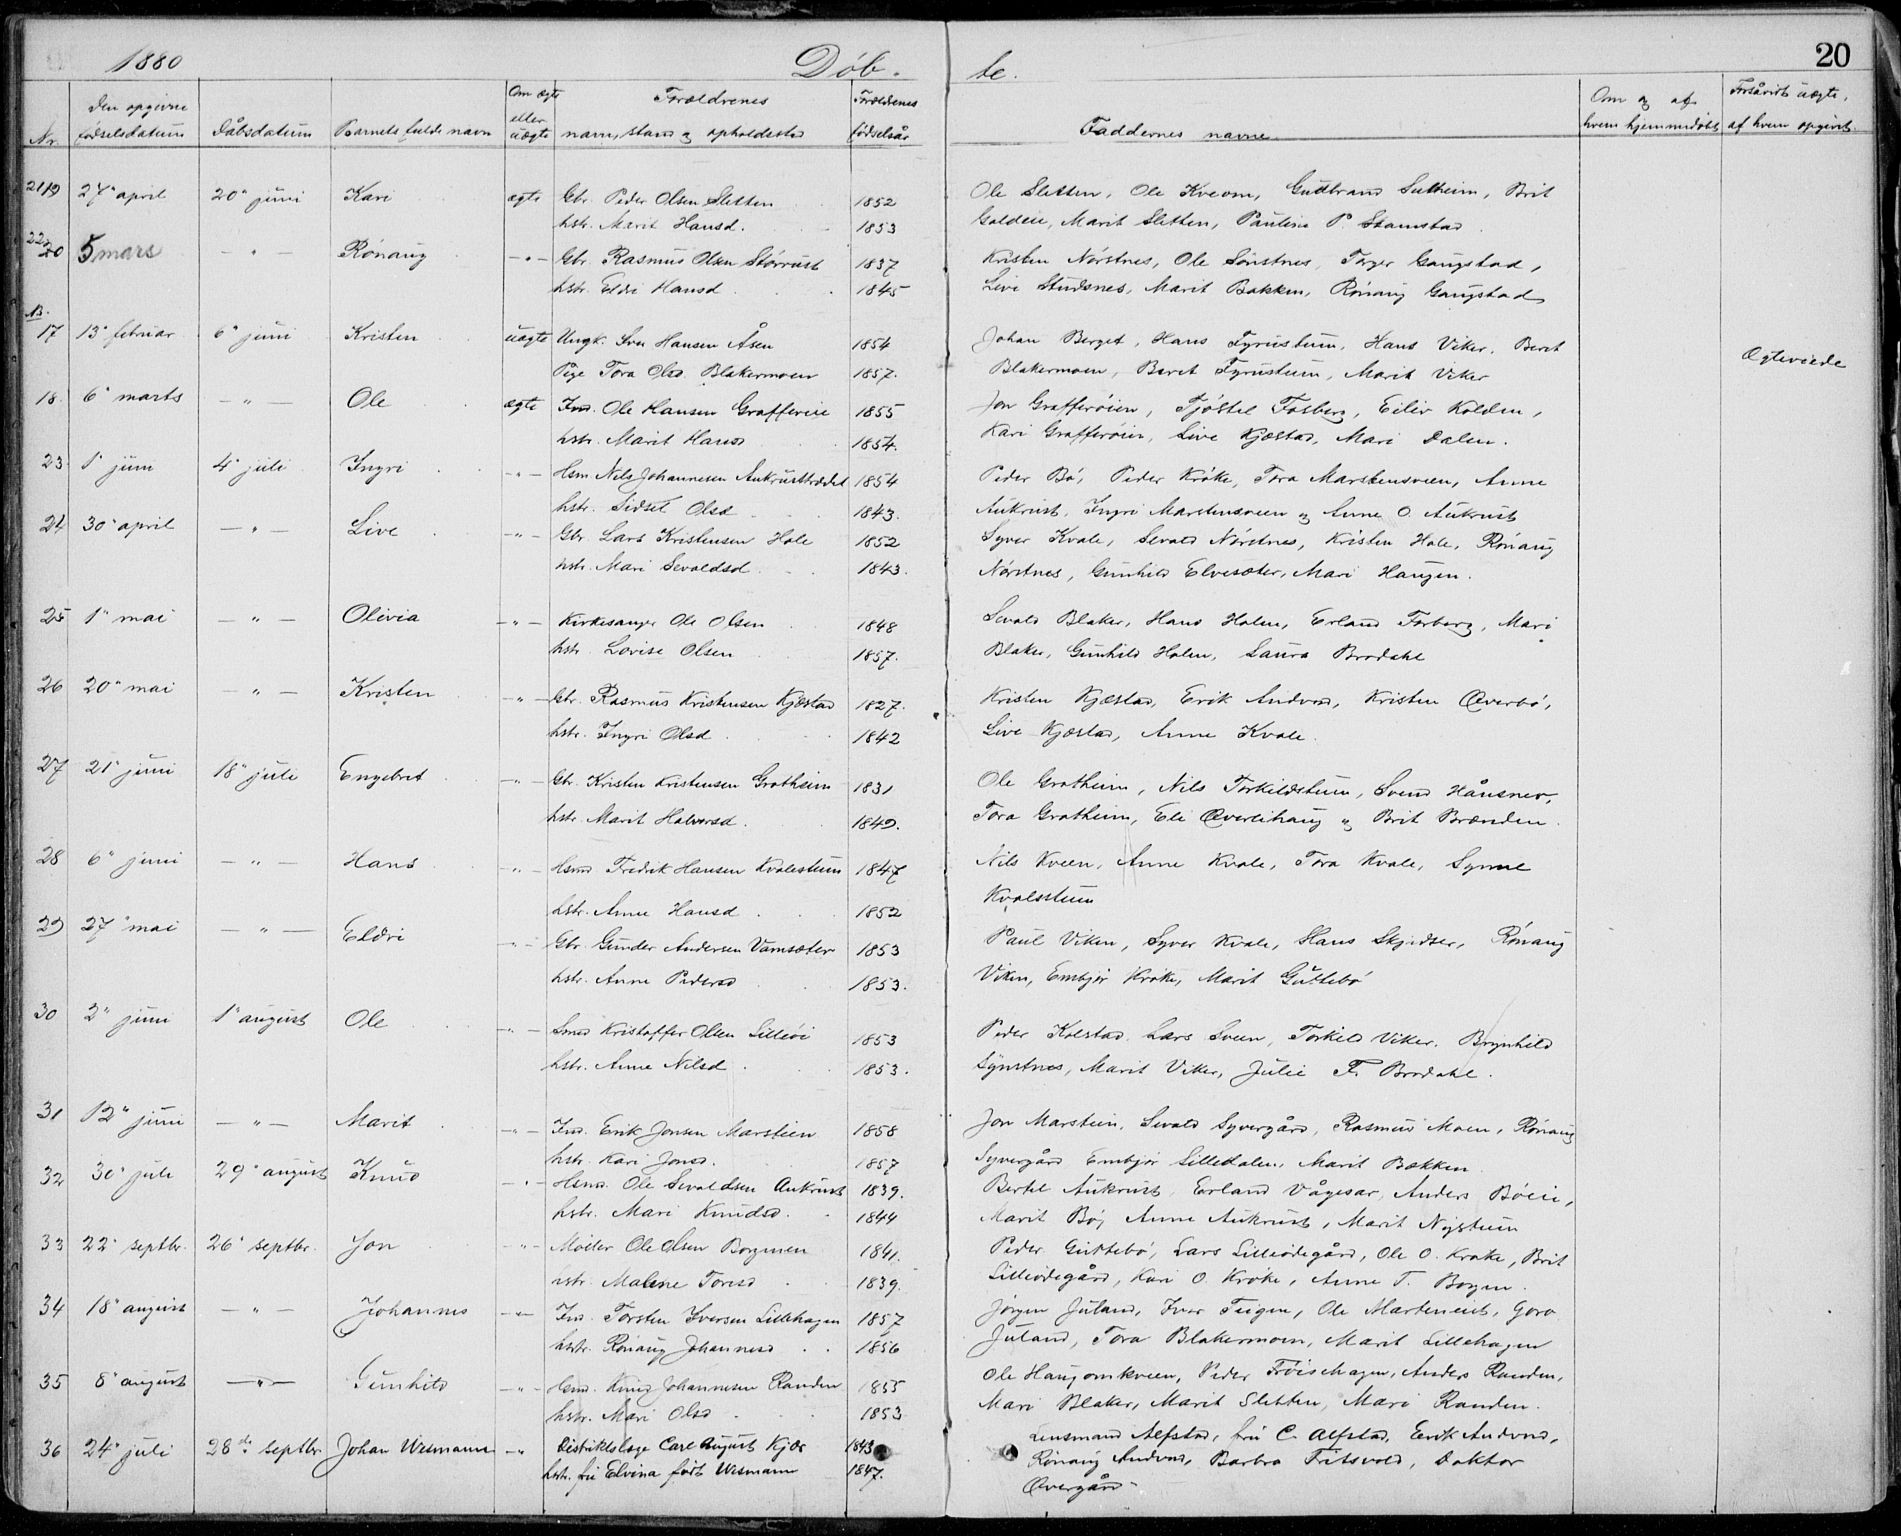 1880 Døb- te. 20
Nr. Den opgivne fødselsdatum Dåbsdatum Barnets fulde navn Om ægte eller uægte Forældrenes navn, stand og opholdssted Forældrenes fødselsår Faddernes navne Om og af hvem hjemmedøbt Forsåvidt uægte, af hvem opgivet.
21 19 27" april 20" juni Kari ægte Gbr. Peder Olsen Sletten 1852 Ole Sletten, Ole Kveom, Gudbrand Sulheim, Brit
hstr. Marit Hansd. 1853 Goldeie, Marit Sletten, Pauline P. Stamstad
22 20 5 mars — " — Rønaug — " — Gbr. Rasmus Olsen Størrust 1837 Kristen Nørstnes, Ole Sønstnes, Torger Gaupstad,
hstr. Eldri Hansd 1845 Live Studsnes, Marit Bakken, Rønaug Gaupstad
N.
17 13" februar 6" juni Kristen uægte Ungk. Iver Hansen Åsen 1854 Johan Berget, Hans Fyrustum, Hans Viker, Berit Ægteviede
Pige Tora Olsd. Blakermoen 1857. Blakermoen, Berit Fyrustum, Marit Viker
18. 6" marts — " — Ole ægte Ind. Ole Hansen Grafferøie 1855 Jon Grafferøien, Tjøstel Fosberg, Eiliv Kolden,
hstr. Marit Hansd 1854. Kari Grafferøien, Live Kjæstad, Mari Dalen.
23. 1" juni 4" juli Ingri — " — Hsm. Nils Johannesen Aukrusttrædet 1854 Peder Bø, Peder Krøke, Tora Marsteinsveen, Anne
hstr. Sidsel Olsd 1843. Aukrust, Ingri Marsteinsveen og Anne O. Aukrust
24 30" april — " — Live — " — Gbr. Lars Kristensen Hole 1852 Syver Kvale, Sevald Nørstnes, Kristen Hole, Rønaug
hstr. Mari Sevaldsd. 1843. Nørstnes, Gunhild Elvesæter, Mari Haugen.
25 1" mai — " — Olivia — " — Kirkesanger Ole Olsen 1848 Sevald Blaker, Hans Holen, Erland Forberg, Mari
hstr. Lovise Olsen 1857. Blaker, Gunhild Holen, Laura Brodahl
26 20" mai — " — Kristen — " — Gbr. Rasmus Kristensen Kjæstad 1827. Kristen Kjæstad, Erik Andvord, Kristen Øverbø,
hstr. Ingri Olsd 1842 Live Kjæstad, Anne Kvale.
27 21" juni 18" juli Engebret — " — Gbr. Kristen Kristensen Grotheim 1831 Ole Grotheim, Nils Torkildstuen, Svend Håusnev,
hstr. Marit Halvorsd. 1849. Tora Grotheim, Eli Øverlihaug og Brit Brænden.
28 6" juni — " — Hans — " — Hsmd Fredrik Hansen Kvalestuen 1847 Nils Kveen, Anne Kvale, Tora Kvale, Synne
hstr. Anne Hansd 1852 Kvalsstuen
29 27" mai — " — Eldri — " — Gbr. Gunder Andersen Vamsæter 1853 Paul Viken, Syver Kvale, Hans Skjedser, Rønaug
hstr. Anne Pedersd 1853. Viken, Embjør Krøke, Marit Guttebø
30 2" juni 1" august Ole — " — Smed Kristoffer Olsen Lilleøi 1853 Peder Kolstad, Lars Sveen, Torkild Viker, Brynhild
hstr. Anne Nilsd. 1853. Synstnes, Marit Viker, Julie F. Brodahl.
31 12" juni — " — Marit — " — Ind. Erik Jonsen Marstein 1858 Jon Marstein, Sevald Syvergård, Rasmus Moen, Rønaug
hstr. Kari Jonsd. 1857 Syvergård Embjør Lilledalen, Marit Bakken
32 30" juli 29" august Knud — " — Hsmd. Ole Sevaldsen Aukrust 1839. Bertel Aukrust, Erland Vågesar, Anders Bøeie,
hstr. Mari Knudsd. 1844 Marit Bø, Anne Aukrust, Marit Nystuen
33 22" septbr. 26" septbr. Jon — " — Møller Ole Olsen Borgmen 1841. Peder Guttebø, Lars Lilleødegård, Ole O. Krøke, Brit
hstr. Malene Toresd 1839. Lilleødegård, Kari O. Krøke, Anne T. Borgen.
34 18" august — " — Johannes — " — Ind. Torsten Iversen Lillehagen 1857 Jørgen Juland, Iver Teigen, Ole Marteneiet, Goro
hstr. Rønaug Johannesd 1856 Juland, Tora Blakermoen, Marit Lillehagen
35 8" august — " — Gunhild — " — Hsmd. Knud Johannesen Randen 1855 Ole Haugomkveen, Peder Frøisehagen, Anders Randen,
hstr. Mari Olsd 1853. Mari Blaker, Marit Sletten, Mari Randen.
36 24" juli 28de septbr. Johan Wesmann — " — Distriktslæge Carl August Kjær 1843 Lensmand Alfstad, fru C. Alfstad, Erik Andvord,
hstr. fru Elvina født Wesmann 1847. Rønaug Andvord, Barbra Fritsvold, Doktor
Øvergård